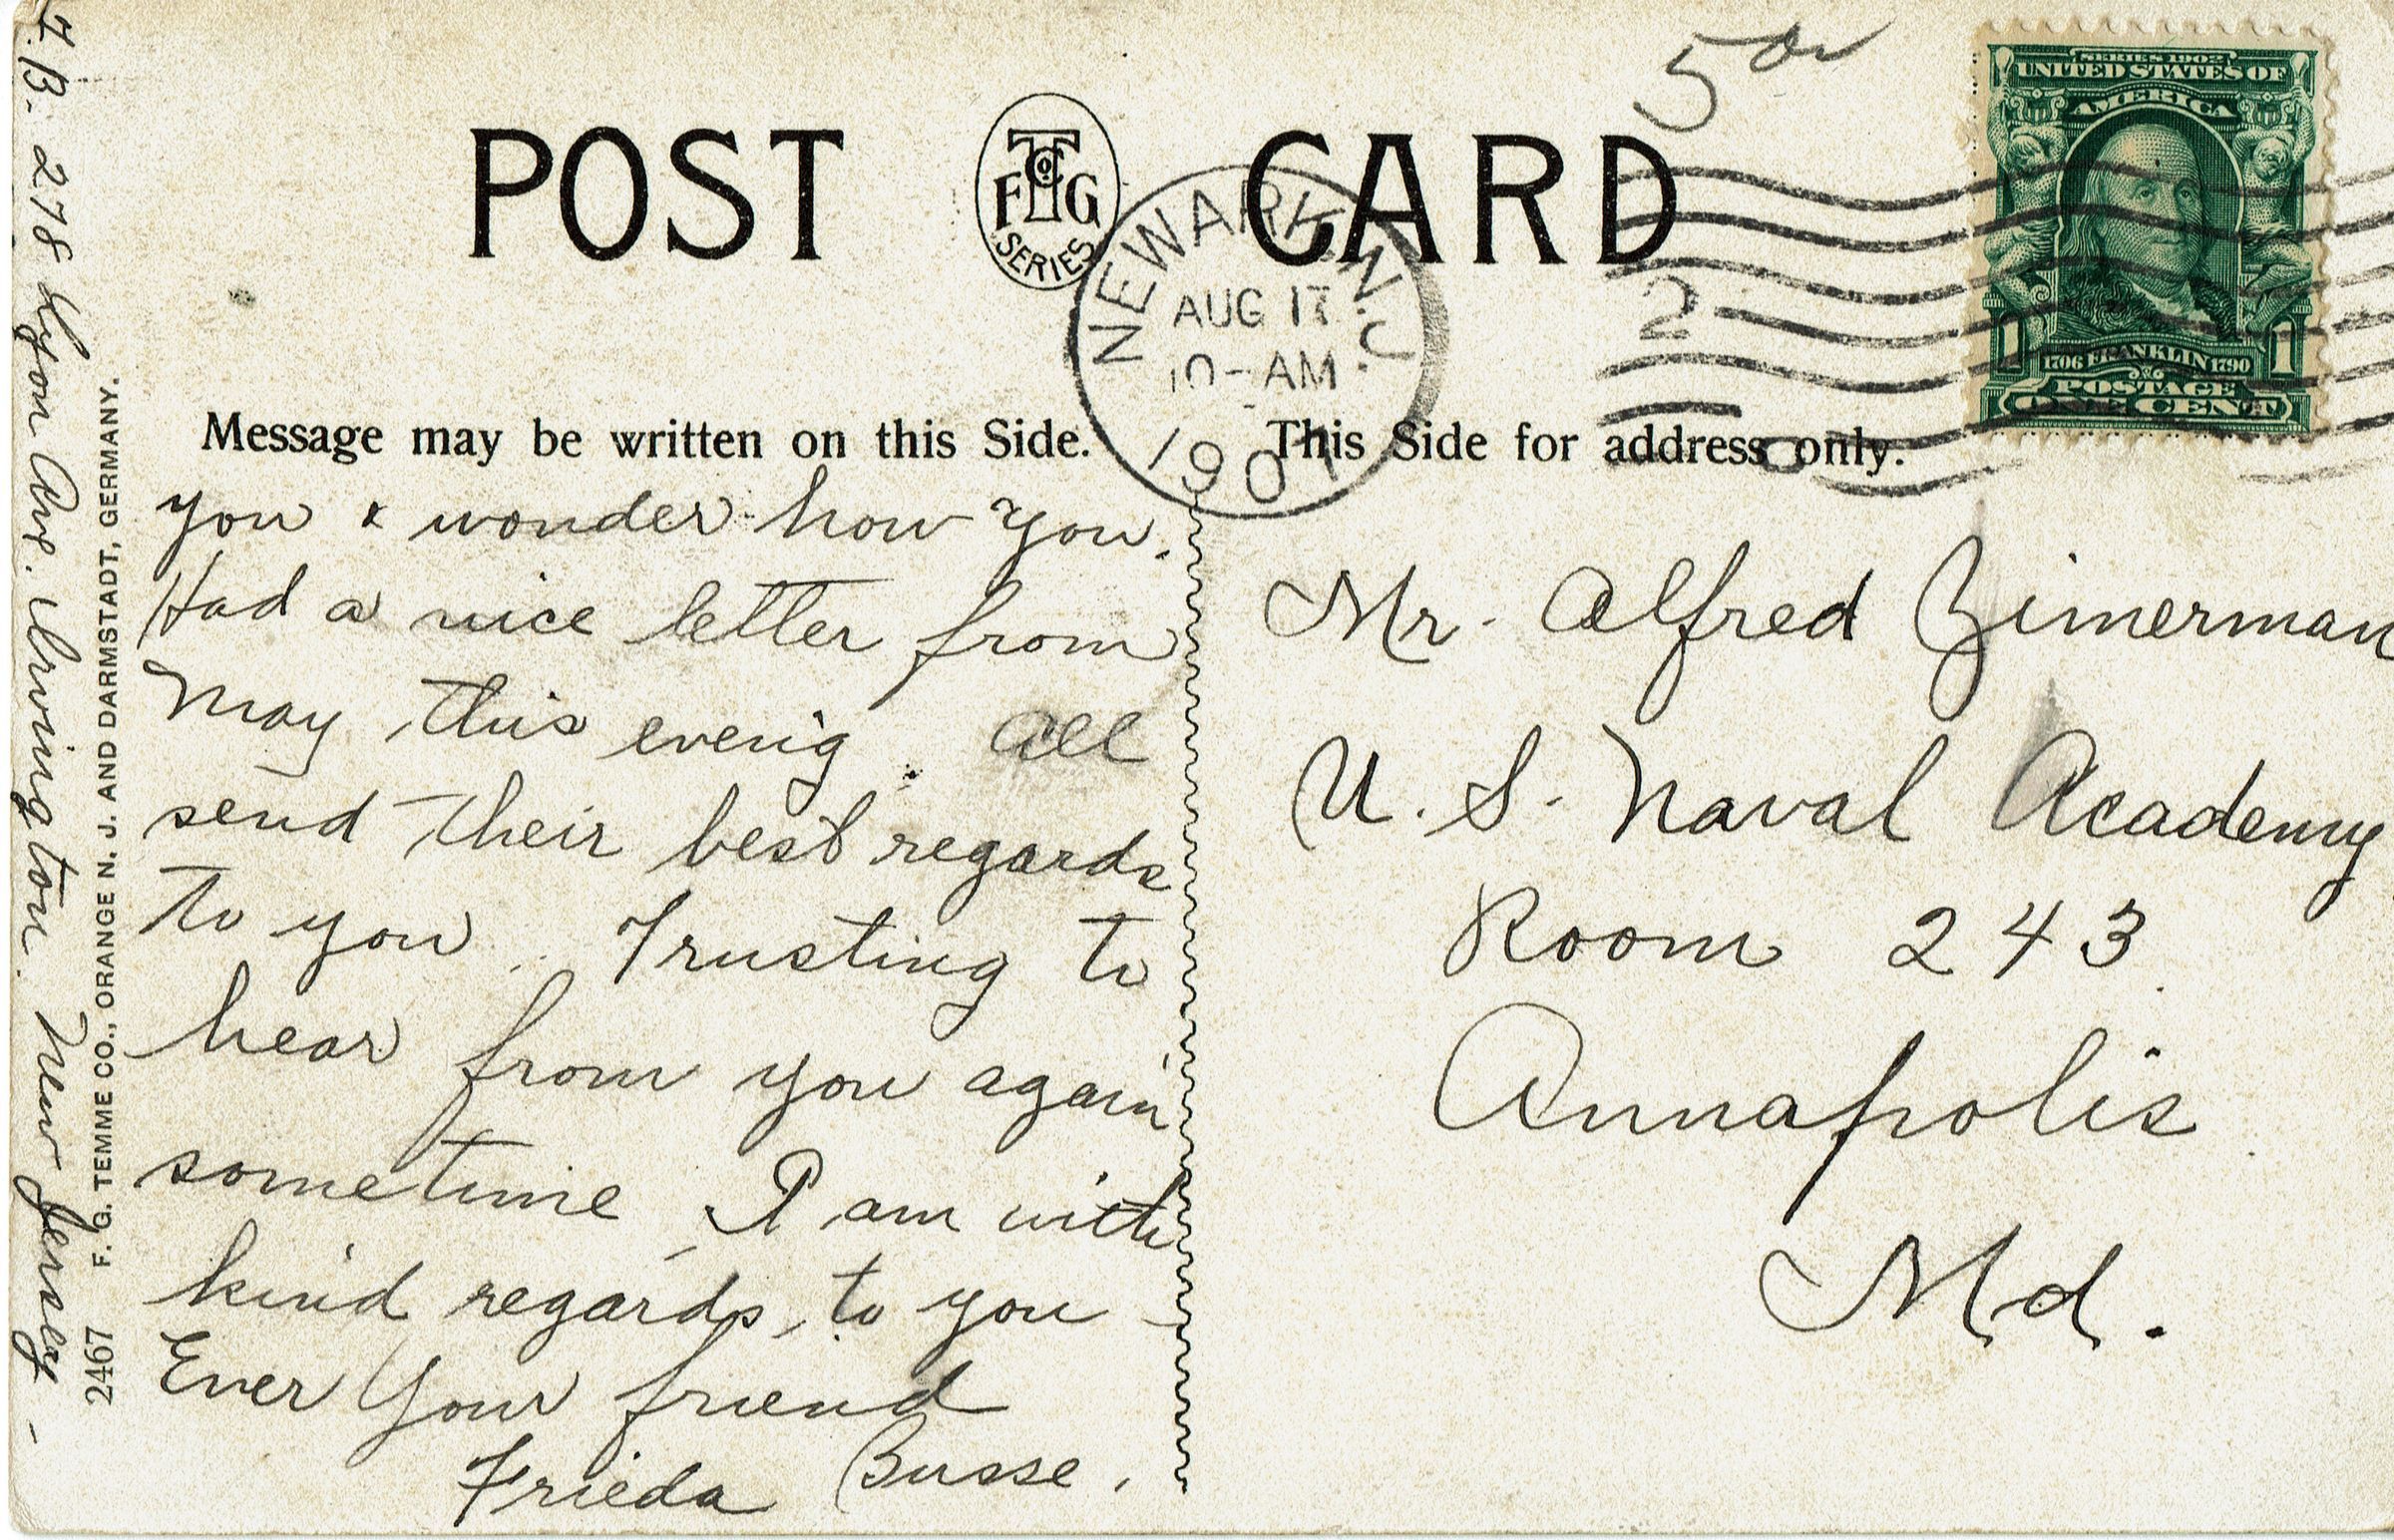 F.B. 278 Lyon Ave. Irvington. New Jersey -
2467 F. G. TEMME CO., ORANGE N. J. AND DARMSTADT, GERMANY.
POST CARD
F T Co. G
SERIES
NEWARK N.J.
AUG 17
10-AM
1907
2
SERIES 1902
UNITED STATES OF
AMERICA
1706 FRANKLIN 1790
1 1
POSTAGE
ONE CENT
Message may be written on this Side.
you & wonder how you.
Had a nice letter from
May this evenig. All
send their best regards
to you. Trusting to
hear from you again
sometime, I am with
kind regards, to you
Ever Your friend
Frieda Busse.
This Side for address only.
Mr. Alfred Zimerman
U. S. Naval Academy
Room 243.
Annapolis
Md.